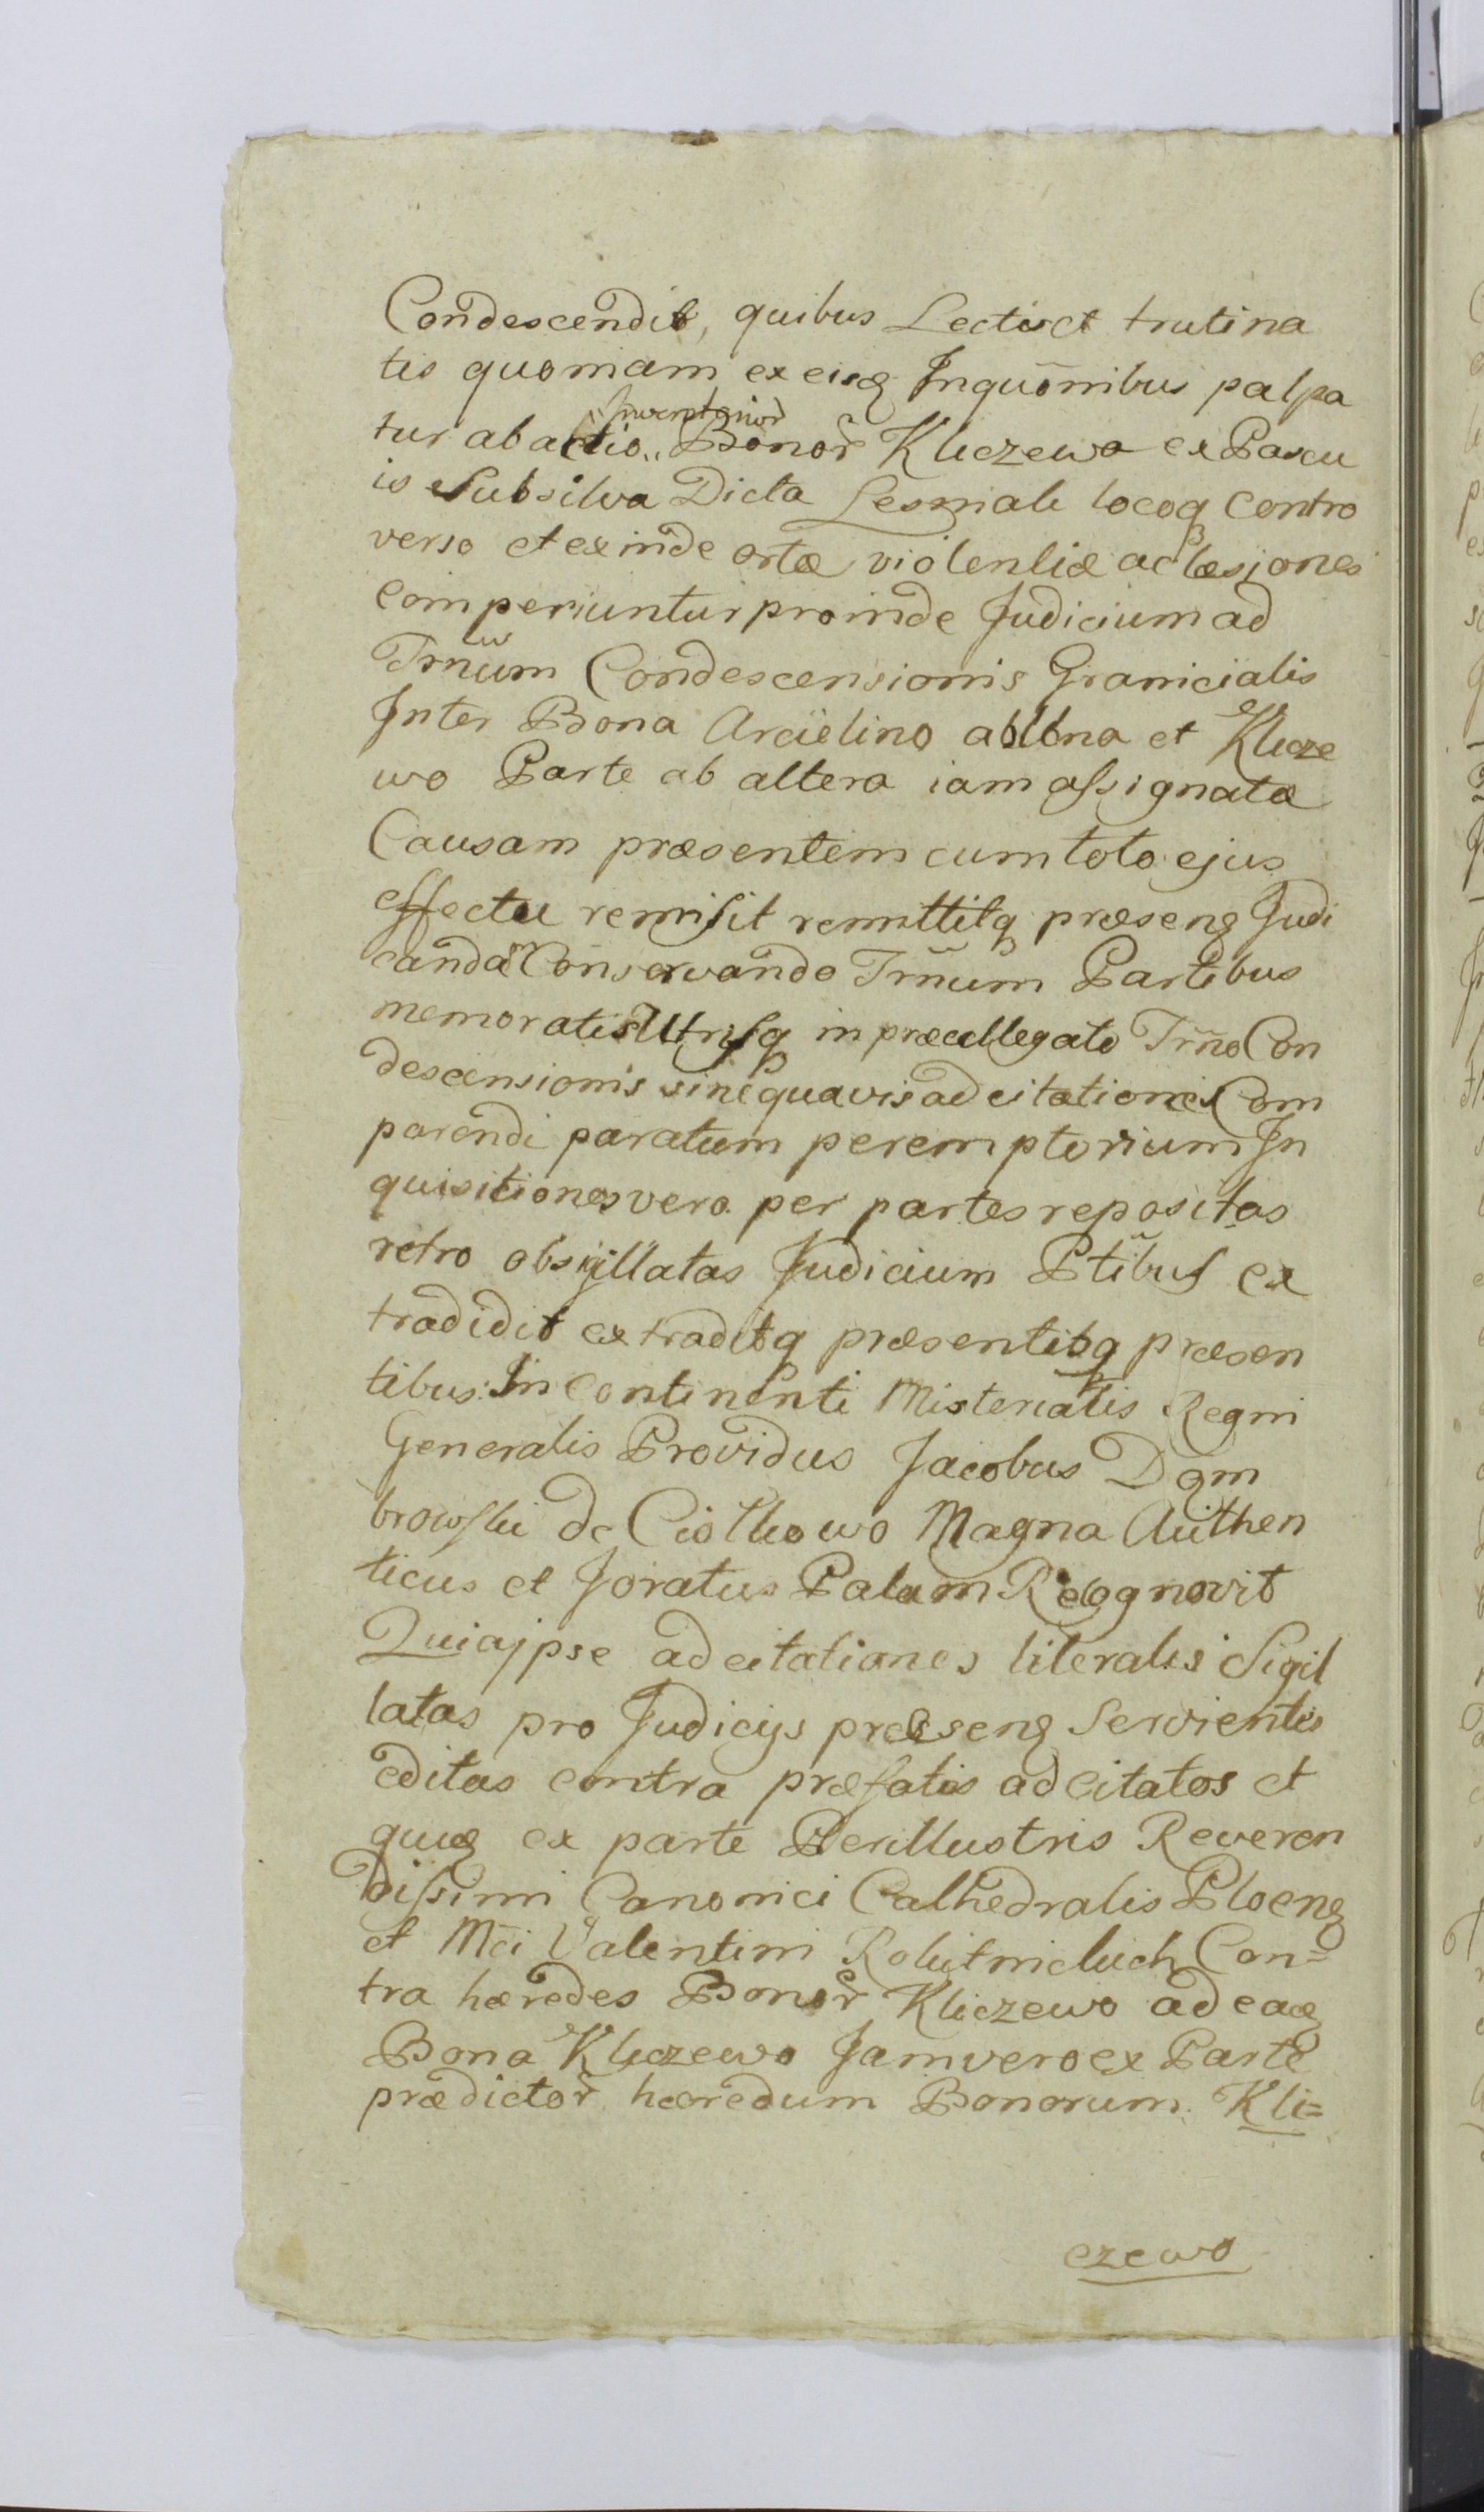 Condescendit, quibus Lectis et trutina
tis quoniam ex eisq Inquõnibus palpa
Inventarior
tur abactio Bonor̃ Kliczewo ex Pascu
is Subsilva Dicta Leszniak locoq contro
verso et exinde ortæ violentiæ ac læsiones
comperiuntur proinde Judicium ad
Trm̃um Condescensionis Granicialis
Inter Bona Arcielino ab Una et Klicze
wo Parte ab altera iam assignatæ
Causam præsentem cum toto ejus
effectu remisit remittitq præsenq Judi
candã Conservando Trm̃um Partibus
memoratis Utrisq in præallegato Trm̃o Con
descensionis sine quavis adcitationes Com
parendi paratum peremptorium In
quisitiones vero per partes repositas
retro obsigillatas Judicium Ptibus ex
tradidit extraditq præsentibq præsen
tibus: In Continenti Misterialis Regni
Generalis Providus Jacobus Dom
browski de Ciołkowo Magna Authen
ticus et Joratus Palam Recognovit
Quia jpse adcitationes literalis Sigil
latas pro Judicijs præsenq Servientes
editas contra præfatis adcitatos et
quæ ex parte Perillustris Reveren
dissimi Canonici Cathedralis Plocenq
et Mci Valentini Robitnicluch Con=
tra hæredes Bonor̃ Kliczewo ad eaq
Bona Kliczewo Jam vero ex Parte
prædictor̃ hæredum Bonorum Kli=
czewo